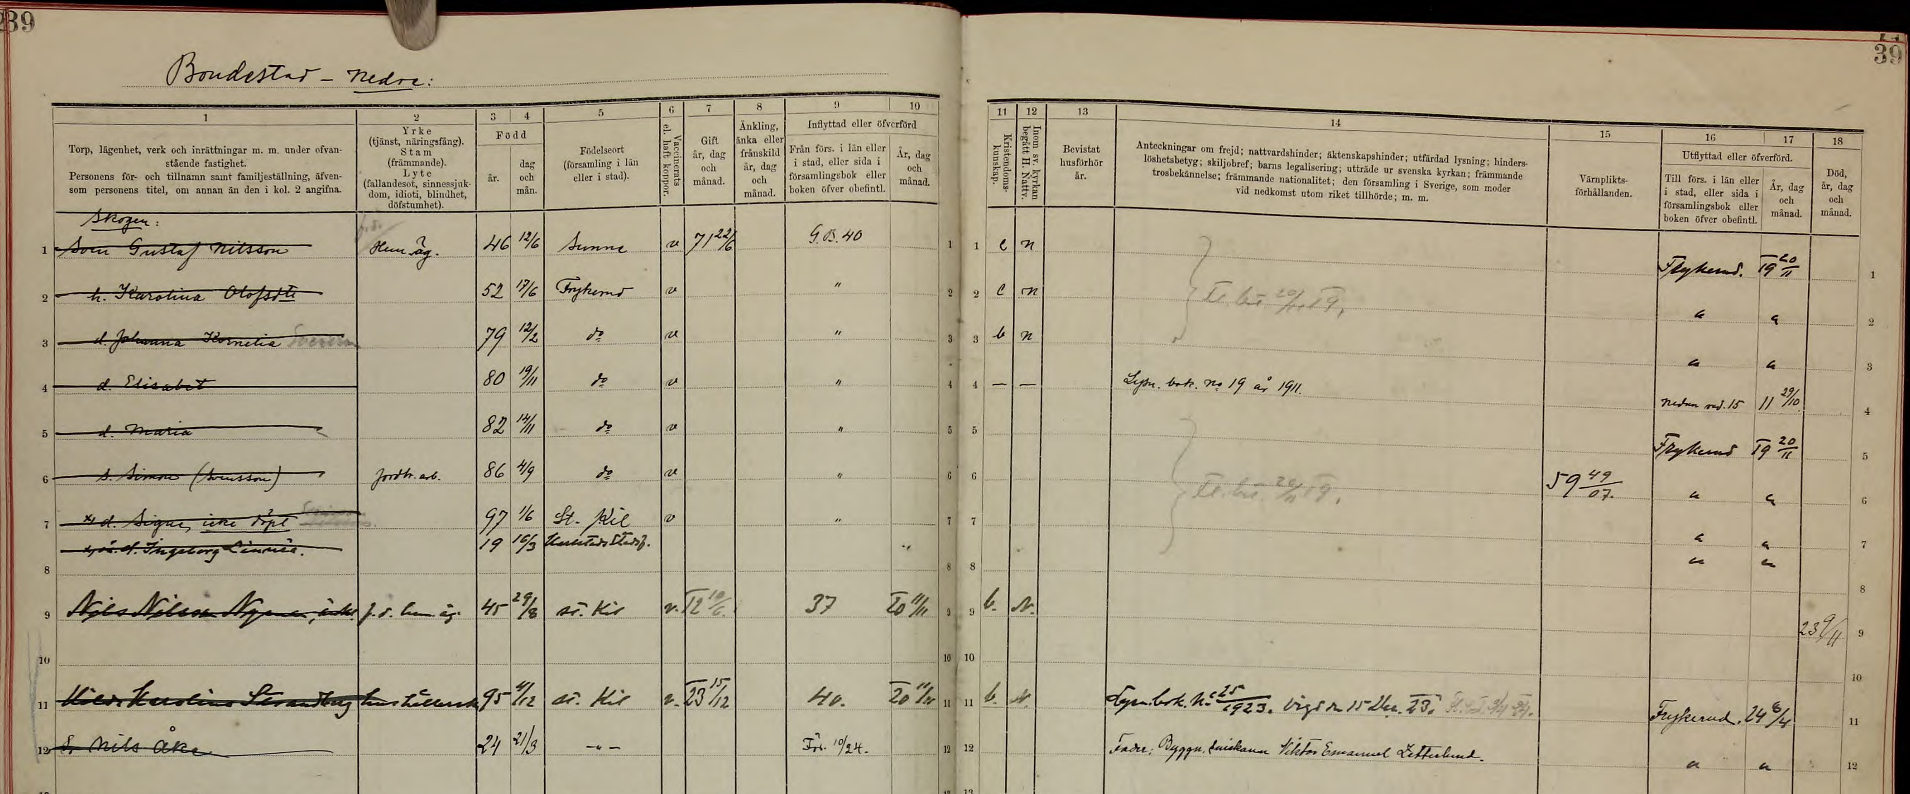 39
39
Bondestad - nedre:
1
2
3
4
5
6
7
8
9
10
11
12
13
14
15
16
17
18
Torp, lägenhet, verk och inrättningar m. m. under ofvan-
stående fastighet.
Personens för- och tillnamn samt familjeställning, äfven-
som personens titel, om annan än den i kol. 2 angifna.
Yrke
(tjänst, näringsfång).
Stam
(främmande).
Lyte
(fallandesot, sinnessjuk-
dom, idioti, blindhet,
döfstumhet).
Född
år.
dag
och
mån.
Födelseort
(församling i län
eller i stad).
Vaccinerats
el. haft koppor.
Gift
år, dag
och
månad.
Änkling,
änka eller
frånskild
år, dag
och
månad.
Inflyttad eller öfverförd
Från förs. i län eller
i stad, eller sida i
församlingsbok eller
boken öfver obefintl.
År, dag
och
månad.
Kristendoms-
kunskap.
Inom sv. kyrkan
begått H. Nattv.
Bevistat
husförhör
år.
Anteckningar om frejd; nattvardshinder; äktenskapshinder; utfärdad lysning; hinders-
löshetsbetyg; skiljobref; barns legalisering; utträde ur svenska kyrkan; främmande
trosbekännelse; främmande nationalitet; den församling i Sverige, som moder
vid nedkomst utom riket tillhörde; m. m.
Värnplikts-
förhållanden.
Utflyttad eller öfverförd.
Till förs. i län eller
i stad, eller sida i
församlingsbok eller
boken öfver obefintl.
År, dag
och
månad.
Död,
år, dag
och
månad.
Skogen:
1 Sven Gustaf Nilsson Hem.äg. 46 12/6 Sunne v 71 22/6 G.B. 40 1 1 c n Frykerud. 19 20/11 1
2 h. Karolina Olofsdtr 52 17/6 Frykerud v " 2 2 c n 2
3 d. Johanna Kornelia 79 12/2 do v " 3 3 b n 3
4 d. Elisabet 80 19/11 do v " 4 4 — — Lysn. bok. No 19 år 1911. nedan rad. 15 11 29/10 4
5 d. Maria 82 14/11 do v " 5 5 Frykerud 19 20/11 5
6 s. Simon (Svensson) Jordbr.arb. 86 4/9 do v " 6 6 59 49/07. 6
7 d. Signe, icke döpt 97 1/6 St. Kil v " 7 7 7
d. Ingeborg Linnéa. 19 16/3
8 8 8 8
9 Nils Nilsson Nygren, f. d. hem.äg. 45 29/8 st. Kil v. 12 37 20 11/11 9 9 b. N. 23 9/11 9
10 10 10 10
11 Hilda Karolina Strandberg hushållersk. 95 4/12 st. Kil v. 23 15/12 40. 20 11/11 11 11 b. N. Lysn.bok. No 25/1923. Vigd d. 15 Dec. 23. Frykerud. 24 11
12 Nils Åke 24 21/3 -"- Föb. 10/24. 12 12 Fader: Byggn. snickaren Viktor Emanuel Zetterlund. 12
13